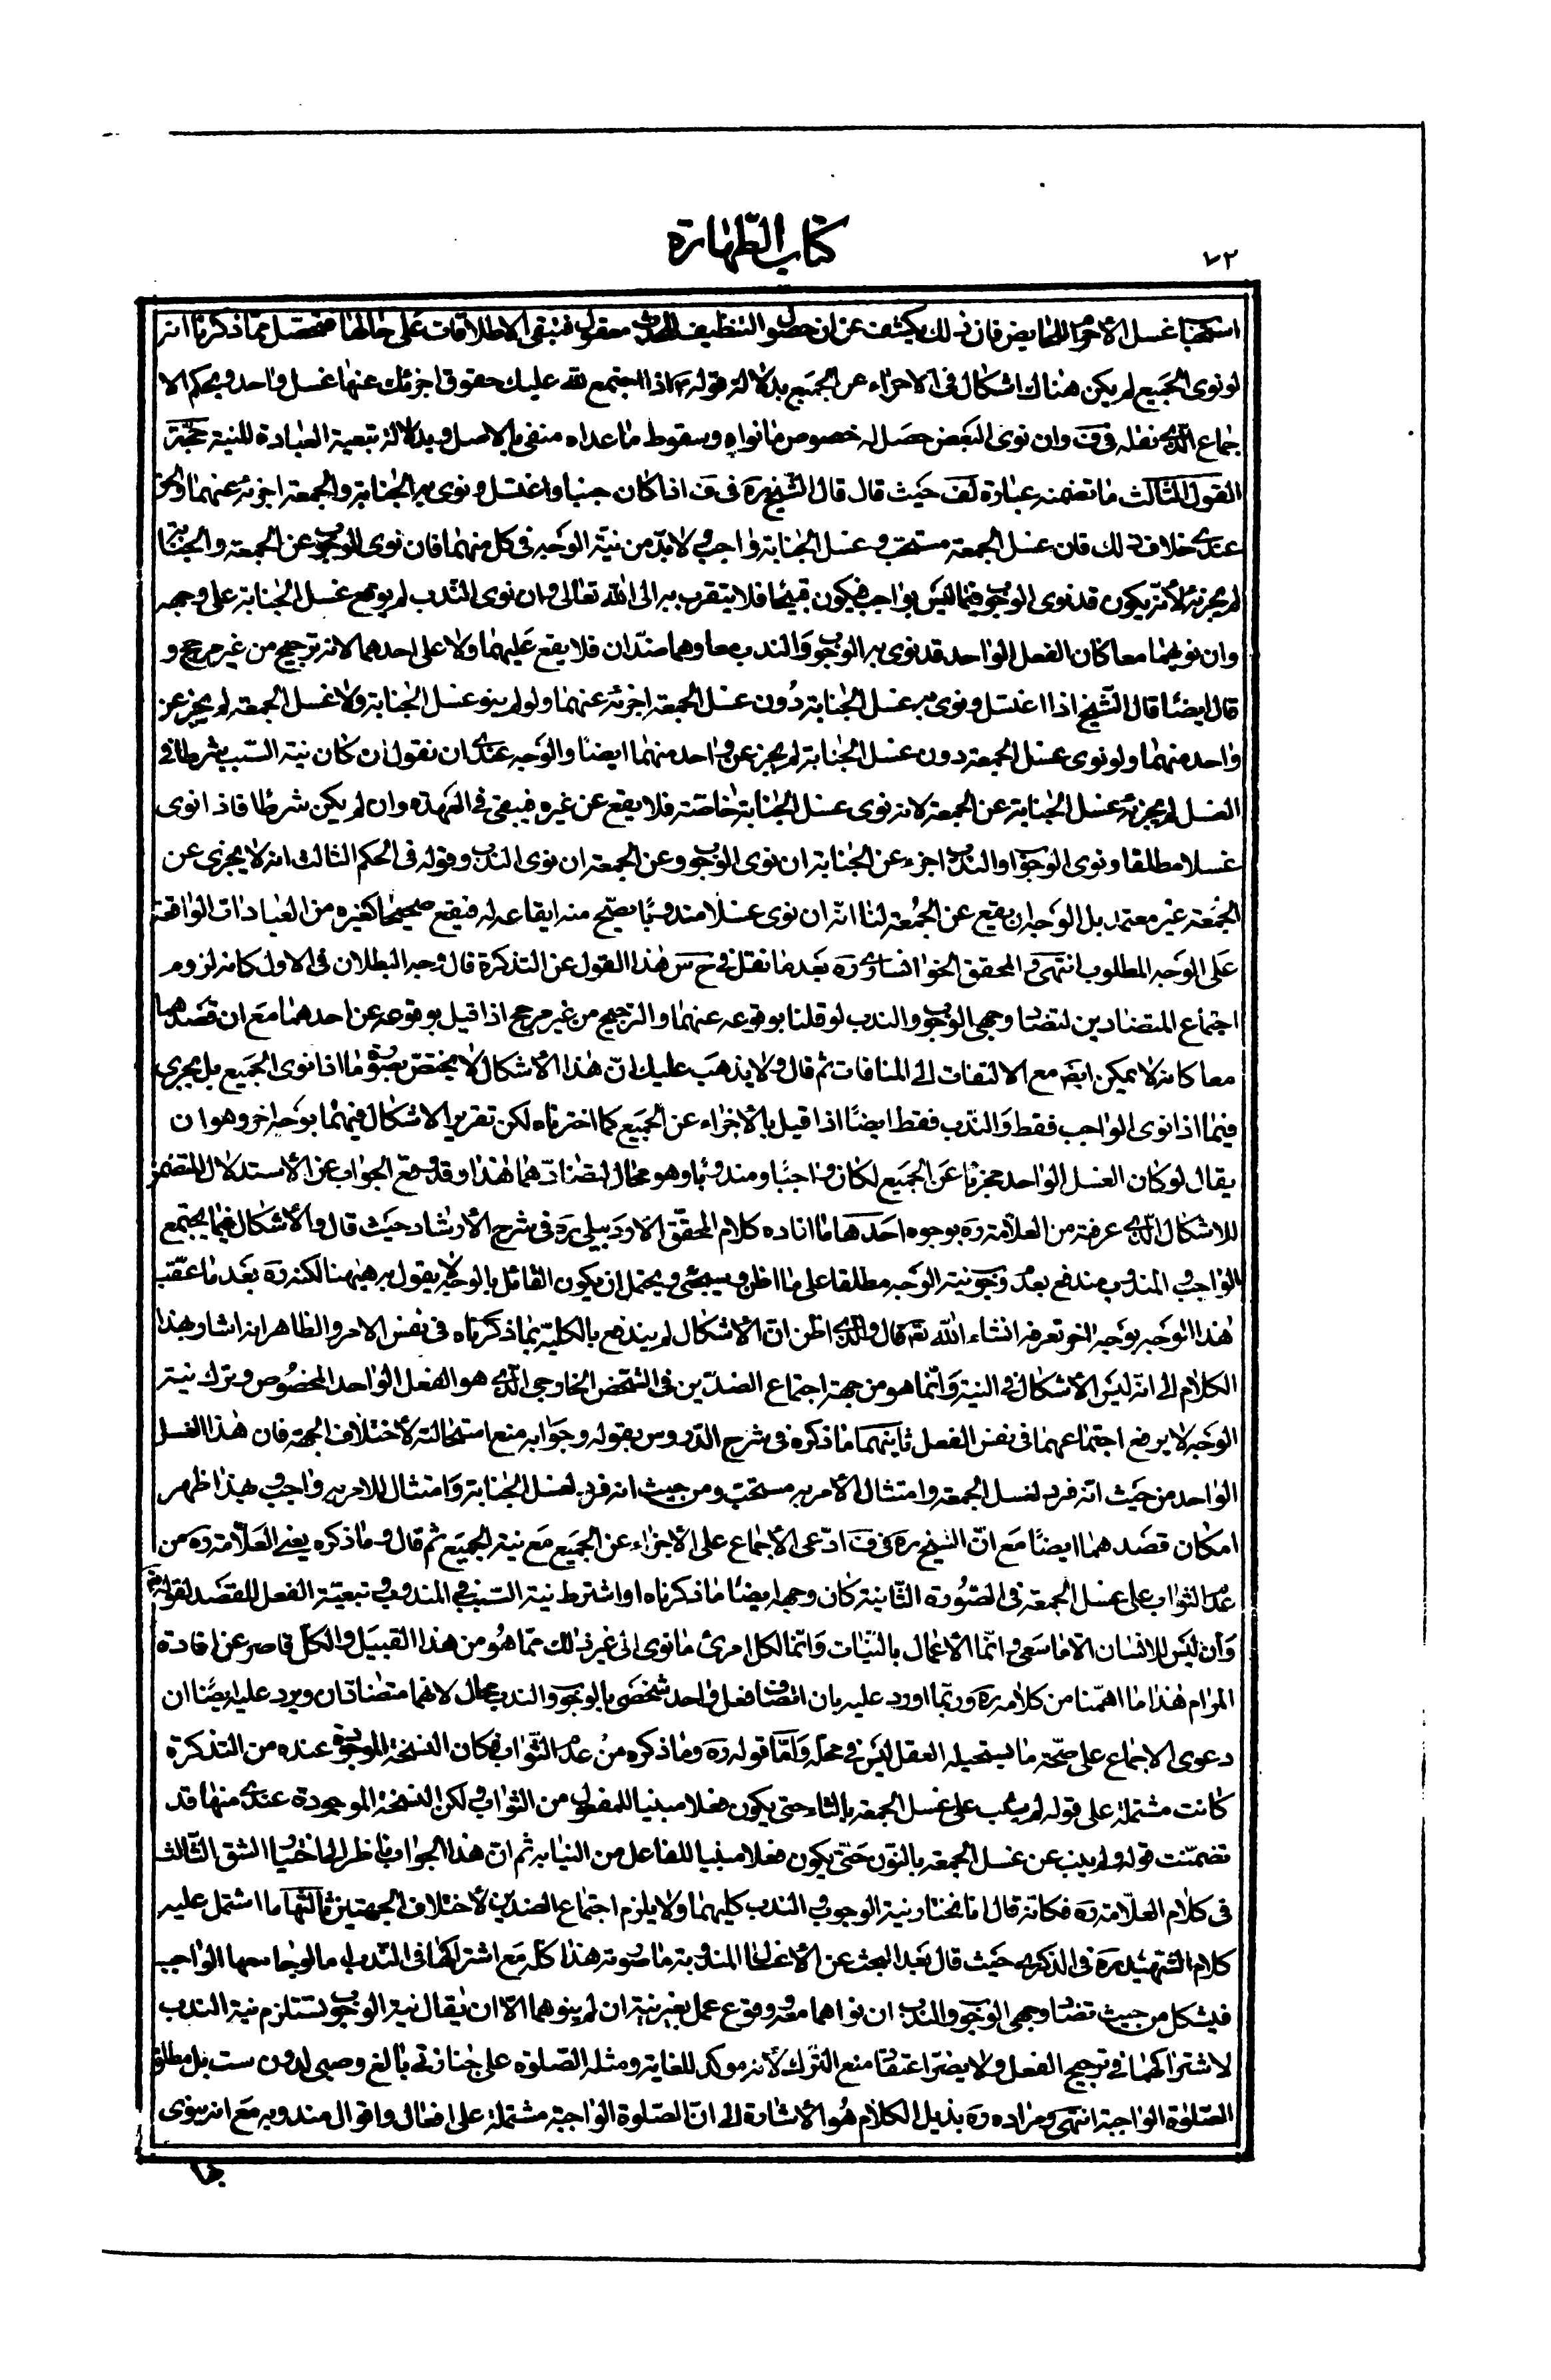 ٧٢
كتاب الطّهارة
استحباب غسل الأحرام للحايض فان ذلك يكشف عن ان حصول التنظيف للمحدث معقول فتبقى الاطلاقات على حالها فتحصّل ممّا ذكرنا انه
لو نوى الجميع لم يكن هناك اشكال فى الاجزاء عن الجميع بدلالة قوله ع اذا اجتمع لله عليك حقوق اجزئك عنها غسل واحد وبحكم الا
جماع الّذى نقله فى ف وان نوى البعض حصل له خصوص ما نواه وسقوط ما عداه منفى بالاصل وبدلالة تبعية العبادة للنية حجّة
القول الثالث ما تضمنه عبارة لف حيث قال قال الشّيخ ره فى ف اذا كان جنبا واغتسل ونوى به الجنابة والجمعة اجزئه عنهما والحق
عندى خلاف ذلك فان غسل الجمعة مستحب وغسل الجنابة واجب ولا بدّ من نيّة الوجه فى كل منهما فان نوى الوجوب عن الجمعة والجنابة
لم يجزئه لأنّه يكون قد نوى الوجوب فيما ليس بواجب فيكون قبيحا فلا يتقرب به الى الله تعالى وان نوى النّدب لم يوقع غسل الجنابة على وجهه
وان نويهما معا كان الفعل الواحد قد نوى به الوجوب والندب معا وهما ضدّان فلا يقع عليهما ولا على احدهما لانه ترجيح من غير مرجح و
قال ايضًا قال الشّيخ اذا اغتسل ونوى به غسل الجنابة دون غسل الجمعة اجزئه عنهما ولو لم ينو غسل الجنابة ولا غسل الجمعة لم يجز عن
واحد منهما ولو نوى غسل الجمعة دون غسل الجنابة لم يجز عن واحد منهما ايضًا والوجه عندى ان نقول ان كان نية السّبب شرطا فى
الغسل لم يجزئه غسل الجنابة عن الجمعة لانه نوى غسل الجنابة خاصّة فلا يقع عن غيره فيبقى فى العهدة وان لم يكن شرطًا فاذا نوى
غسلا مطلقا ونوى الوجوب او الندب اجزء عن الجنابة ان نوى الوجوب وعن الجمعة ان نوى الندب وقوله فى الحكم الثالث انه لا يجزى عن
الجمعة غير معتمد بل الوجه ان يقع عن الجمعة لنا انّه ان نوى غسلا مندوبًا يصحّ منه ايقاعه له فيقع صحيحا كغيره من العبادات الواقعة
على الوجه المطلوب انتهى والمحقق الخوانسارى ره بعد ما نقل فى ح س هذا القول عن التذكرة قال وجه البطلان فى الاول كانه لزوم
اجتماع المتضادين لتضاد وجهى الوجوب والندب لو قلنا بوقوعه عنهما والترجيح من غير مرجح اذا قيل بوقوعه عن احدهما مع ان قصدهما
معا كانه لا يمكن ايض مع الالتفات الى المنافات ثم قال ولا يذهب عليك انّ هذا الأشكال لا يختصّ بصورة ما اذا نوى الجميع بل يجرى
فيما اذا نوى الواجب فقط والنّدب فقط ايضًا اذا قيل بالأجزاء عن الجميع كما اخترناه لكن تقرير الاشكال فيهما بوجه اخر وهو ان
يقال لو كان الغسل الواحد مجزيًا عن الجميع لكان واجبًا ومندوبًا وهو محال لتضادّهما هذا وقد وقع الجواب عن الأستدلال المتضمّن
للاشكال الّذى عرفته من العلّامة ره بوجوه احدها ما افاده كلام المحقّق الاردبيلى ره فى شرح الأرشاد حيث قال والأشكال فيما يجتمع
الواجب والمندوب مندفع بعدم وجوب نية الوجه مطلقا على ما اظن وسيجئ ويحتمل ان يكون القائل بالوجه لا يقول به هيهنا لكنه ره بعد ما عقّب
هذا الوجه بوجه اخر تعرفه انشاء الله تعم قال والّذى اظن انّ الأشكال لم يندفع بالكليّة بما ذكرناه فى نفس الامر والظاهر انه اشار بهذا
الكلام الى انّه ليس الأشكال فى النية وانّما هو من جهة اجتماع الضدّين فى الشّخص الخارجى الّذى هو الفعل الواحد المخصوص وترك نية
الوجه لا يرفع اجتماعهما فى نفس الفعل ثانيهما ما ذكره فى شرح الدّروس بقوله وجوابه منع استحالته لأختلاف الجهة فان هذا الغسل
الواحد من حيث انّه فرد لغسل الجمعة وامتثال الأمر به مستحبّ ومن حيث انه فرد لغسل الجنابة وامتثال للامر به واجب وبهذا ظهر
امكان قصدهما ايضًا مع انّ الشيخ ره فى ف ادّعى الأجماع على الأجزاء عن الجميع مع نية الجميع ثم قال وما ذكره يعنى العلّامة ره من
عدم الثواب على غسل الجمعة فى الصّورة الثّانية كان وجهه ايضًا ما ذكرناه او اشترط نية السّبب فى المندوب وتبعيّة الفعل للقصد لقوله تع
وأن ليس للانسان الّا ما سعى وانّما الأعمال بالنّيات وانّما لكل امرئ ما نوى الى غير ذلك ممّا هو من هذا القبيل والكلّ قاصر عن افادة
المرام هذا ما اهمّنا من كلامه ره وربّما اورد عليه بان اتّصاف فعل واحد شخصى بالوجوب والندب محال لانهما متضادّان ويرد عليه ايضًا ان
دعوى الاجماع على صحّة ما يستحيله العقل ليس فى محلّه وامّا قوله ره وما ذكره من عدم الثّواب فكان النسخة الموجودة عنده من التذكرة
كانت مشتملة على قوله لم يثب على غسل الجمعة بالثاء حتى يكون فعلا مبنيا للمفعول من الثواب ولكن النسخة الموجودة عندى منها قد
تضمّنت قوله ولم ينب عن غسل الجمعة بالنّون حتّى يكون فعلا مبنيا للفاعل من النيابة ثم انّ هذا الجواب ناظر الى اختيار الشق الثّالث
فى كلام العلّامة ره فكانه قال انا نختار نية الوجوب والندب كليهما ولا يلزم اجتماع الضدين لأختلاف الجهتين ثالثها ما اشتمل عليه
كلام الشّهيد ره فى الذكرى حيث قال بعد البحث عن الأغسال المندوبة ما صورته هذا كلّه مع اشتراكها فى النّدب اما لو جامعها الواجب
فيشكل من حيث تضاد وجهى الوجوب والندب ان نواهما معا ووقوع عمل بغير نية ان لم ينوهما الّا ان يقال نية الوجوب تستلزم نية الندب
لاشتراكهما فى ترجيح الفعل ولا يضرّ اعتقاد منع التّرك لأنه مؤكد للغاية ومثله الصّلوة على جنازتى بالغ وصبى لدون ست بل مطلق
الصّلوة الواجبة انتهى ومراده ره بذيل الكلام هو الأشارة الى انّ الصّلوة الواجبة مشتملة على افعال واقوال مندوبة مع انه ينوى
بها